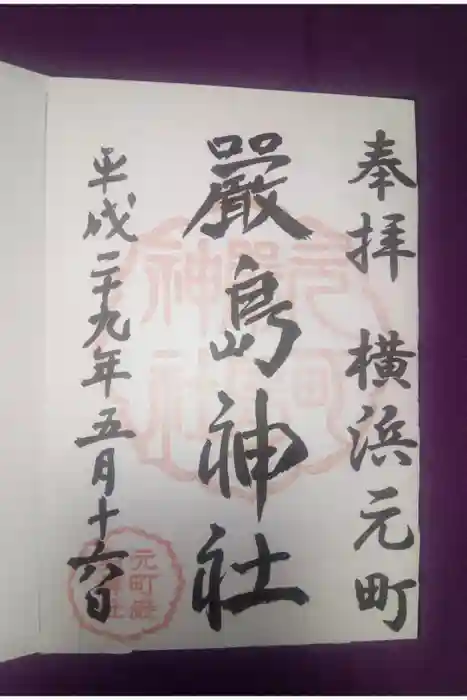 奉拝 横浜元町
嚴島神社
平成二十九年五月十六日